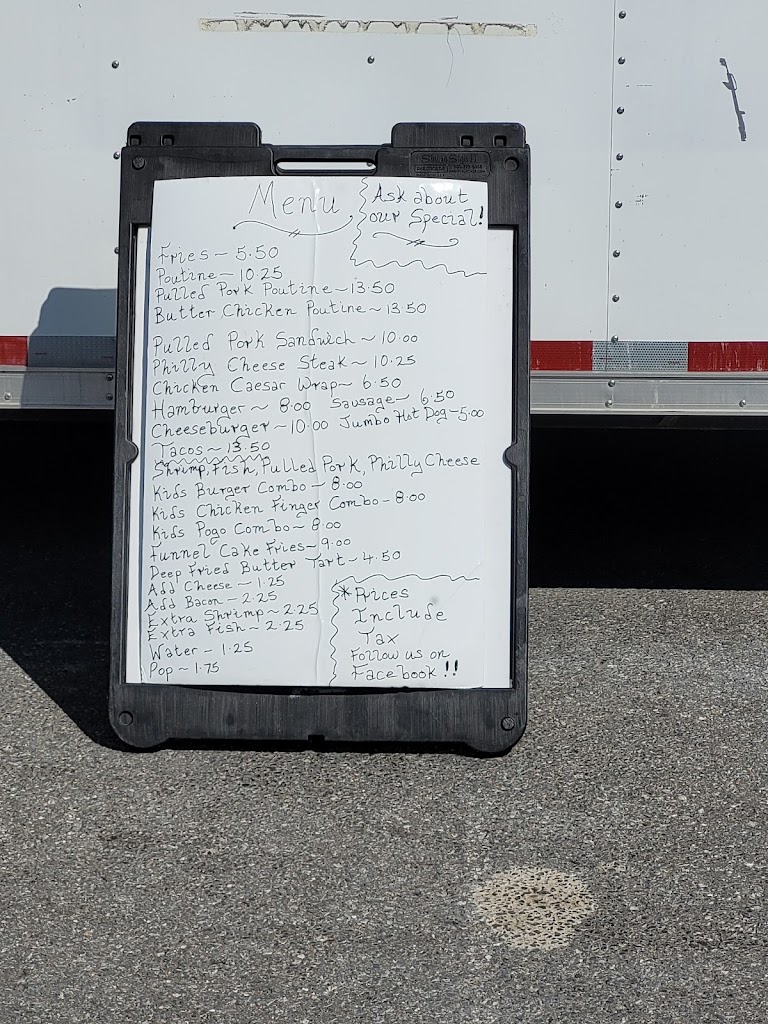 Menu
Ask about
our Special!
Fries ~ 5.50
Poutine ~ 10.25
Pulled Pork Poutine ~ 13.50
Butter Chicken Poutine ~ 13.50
Pulled Pork Sandwich ~ 10.00
Philly Cheese Steak ~ 10.25
Chicken Caesar Wrap ~ 6.50
Hamburger ~ 8.00 Sausage ~ 6.50
Cheeseburger ~ 10.00 Jumbo Hot Dog ~ 5.00
Tacos ~ 13.50
Shrimp, Fish, Pulled Pork, Philly Cheese
Kids Burger Combo ~ 8.00
Kids Chicken Finger Combo - 8.00
Kids Pogo Combo ~ 8.00
Funnel Cake Fries ~ 9.00
Deep Fried Butter Tart ~ 4.50
Add Cheese ~ 1.25
Add Bacon ~ 2.25
Extra Shrimp ~ 2.25
Extra Fish ~ 2.25
Water - 1.25
Pop ~ 1.75
*Prices
Include
Tax
Follow us on
Facebook!!